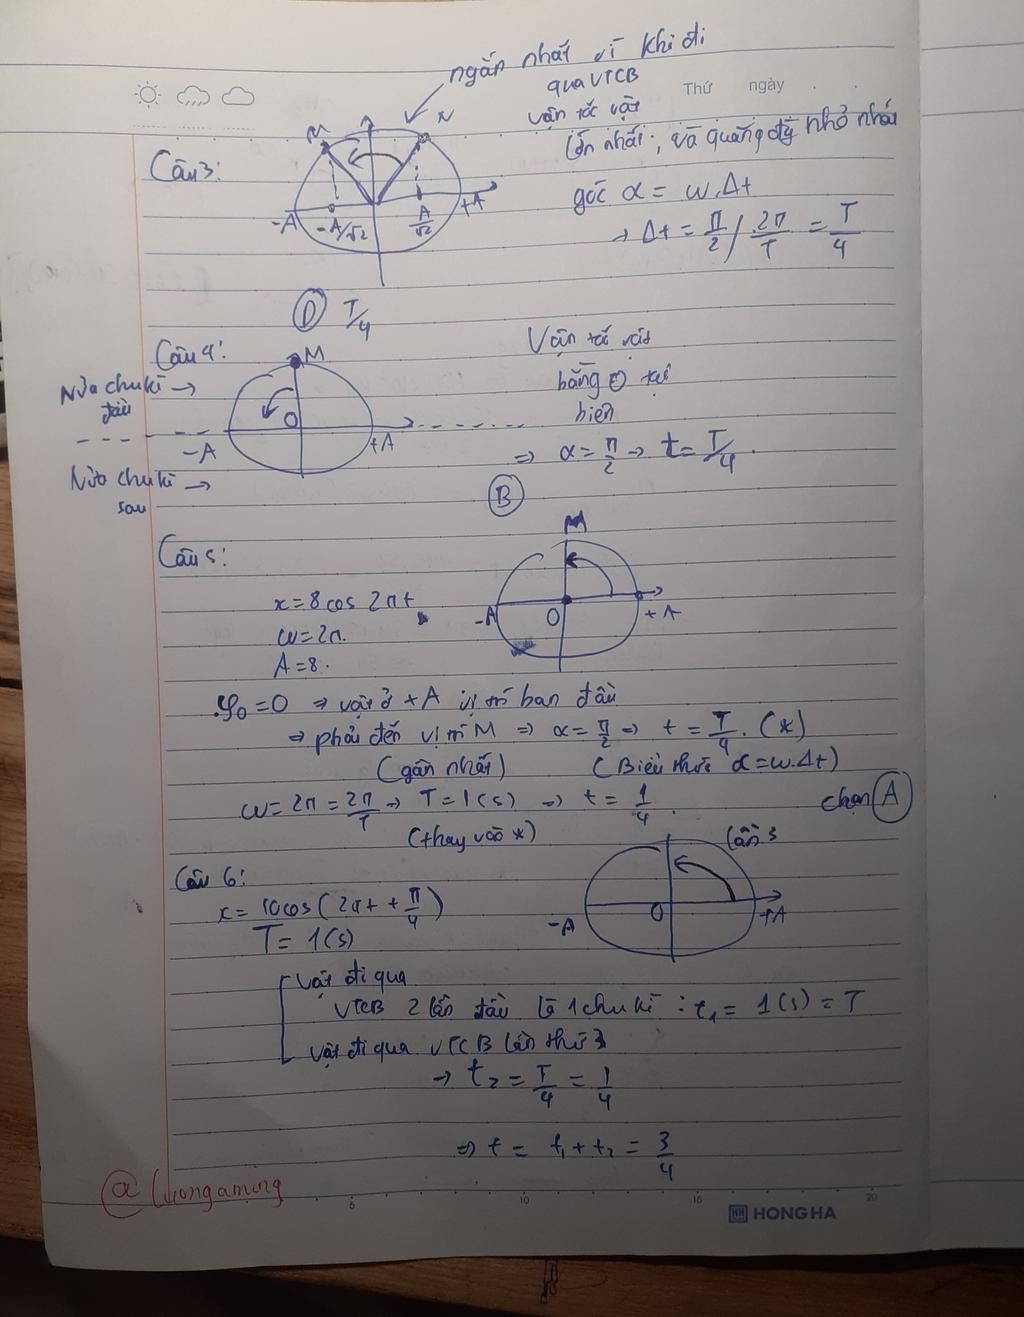 ngắn nhất vì khi đi
qua VTCB
Thứ ngày
vận tốc vật
lớn nhất, và quãng đg nhỏ nhất
Câu 3:
M N
-A -A/√2 A/√2 +A
góc α = ω.Δt
→ Δt = π/2 / 2π/T = T/4
D T/4
Câu 4:
M
Nửa chu kì →
đầu
O
-A +A
Nửa chu kì →
sau
Vận tốc vật
bằng 0 tại
biên
⇒ α = π/2 → t = T/4.
B
Câu 5:
M
-A O +A
x = 8 cos 2πt
ω = 2π.
A = 8.
φ0 = 0 ⇒ vật ở +A vị trí ban đầu
⇒ phải đến vị trí M ⇒ α = π/2 ⇒ t = T/4. (*)
(gần nhất) (Biểu thức α = ω.Δt)
ω = 2π = 2π/T → T = 1(s) ⇒ t = 1/4.
chọn A
(thay vào *)
Câu 6:
lần 3
-A O +A
x = 10cos(2πt + π/4)
T = 1(s)
vật đi qua
VTCB 2 lần đầu là 1 chu kì : t1 = 1(s) = T
vật đi qua VTCB lần thứ 3
→ t2 = T/4 = 1/4
⇒ t = t1 + t2 = 3/4
5 10 15 20
HH HONG HA